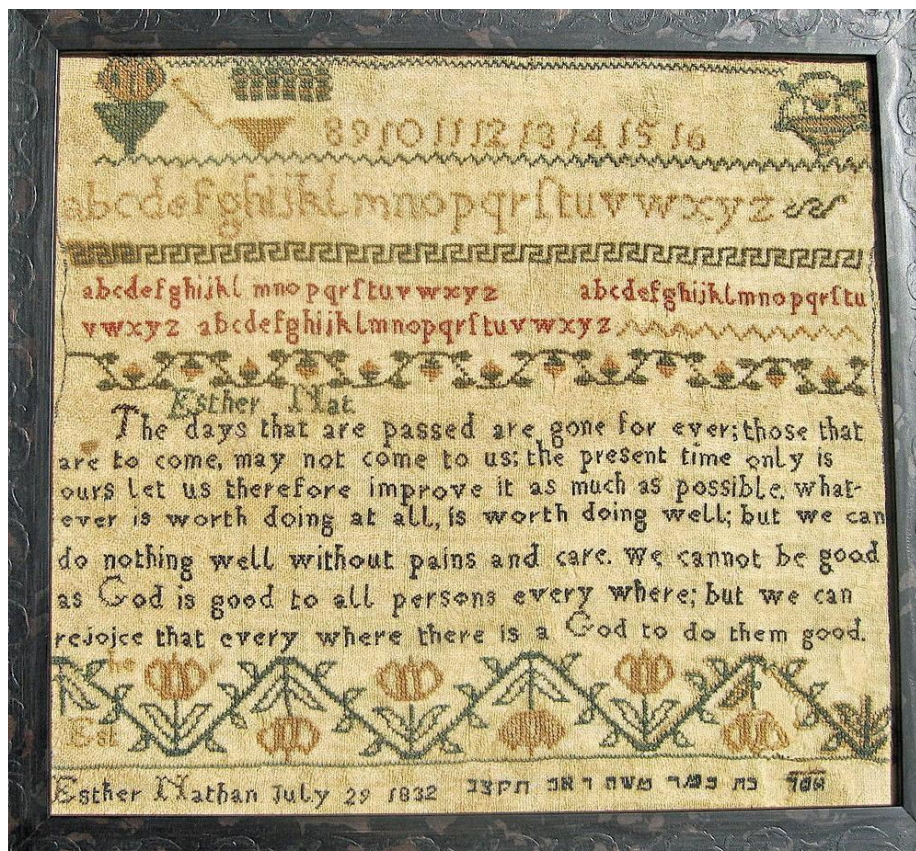 8 9 10 11 12 13 14 15 16
abcdefghijklmnopqrſtuvwxyz
abcdefghijkl mnopqrſtuvwxyz abcdefghijklmnopqrſtu
vwxyz abcdefghijklmnopqrſtuvwxyz
Esther Nat
The days that are passed are gone for ever; those that
are to come, may not come to us; the present time only is
ours let us therefore improve it as much as possible. what-
ever is worth doing at all, is worth doing well; but we can
do nothing well without pains and care. We cannot be good
as God is good to all persons every where; but we can
rejoice that every where there is a God to do them good.
he
Est
Esther Nathan July 29 1832 בת משה תקצב